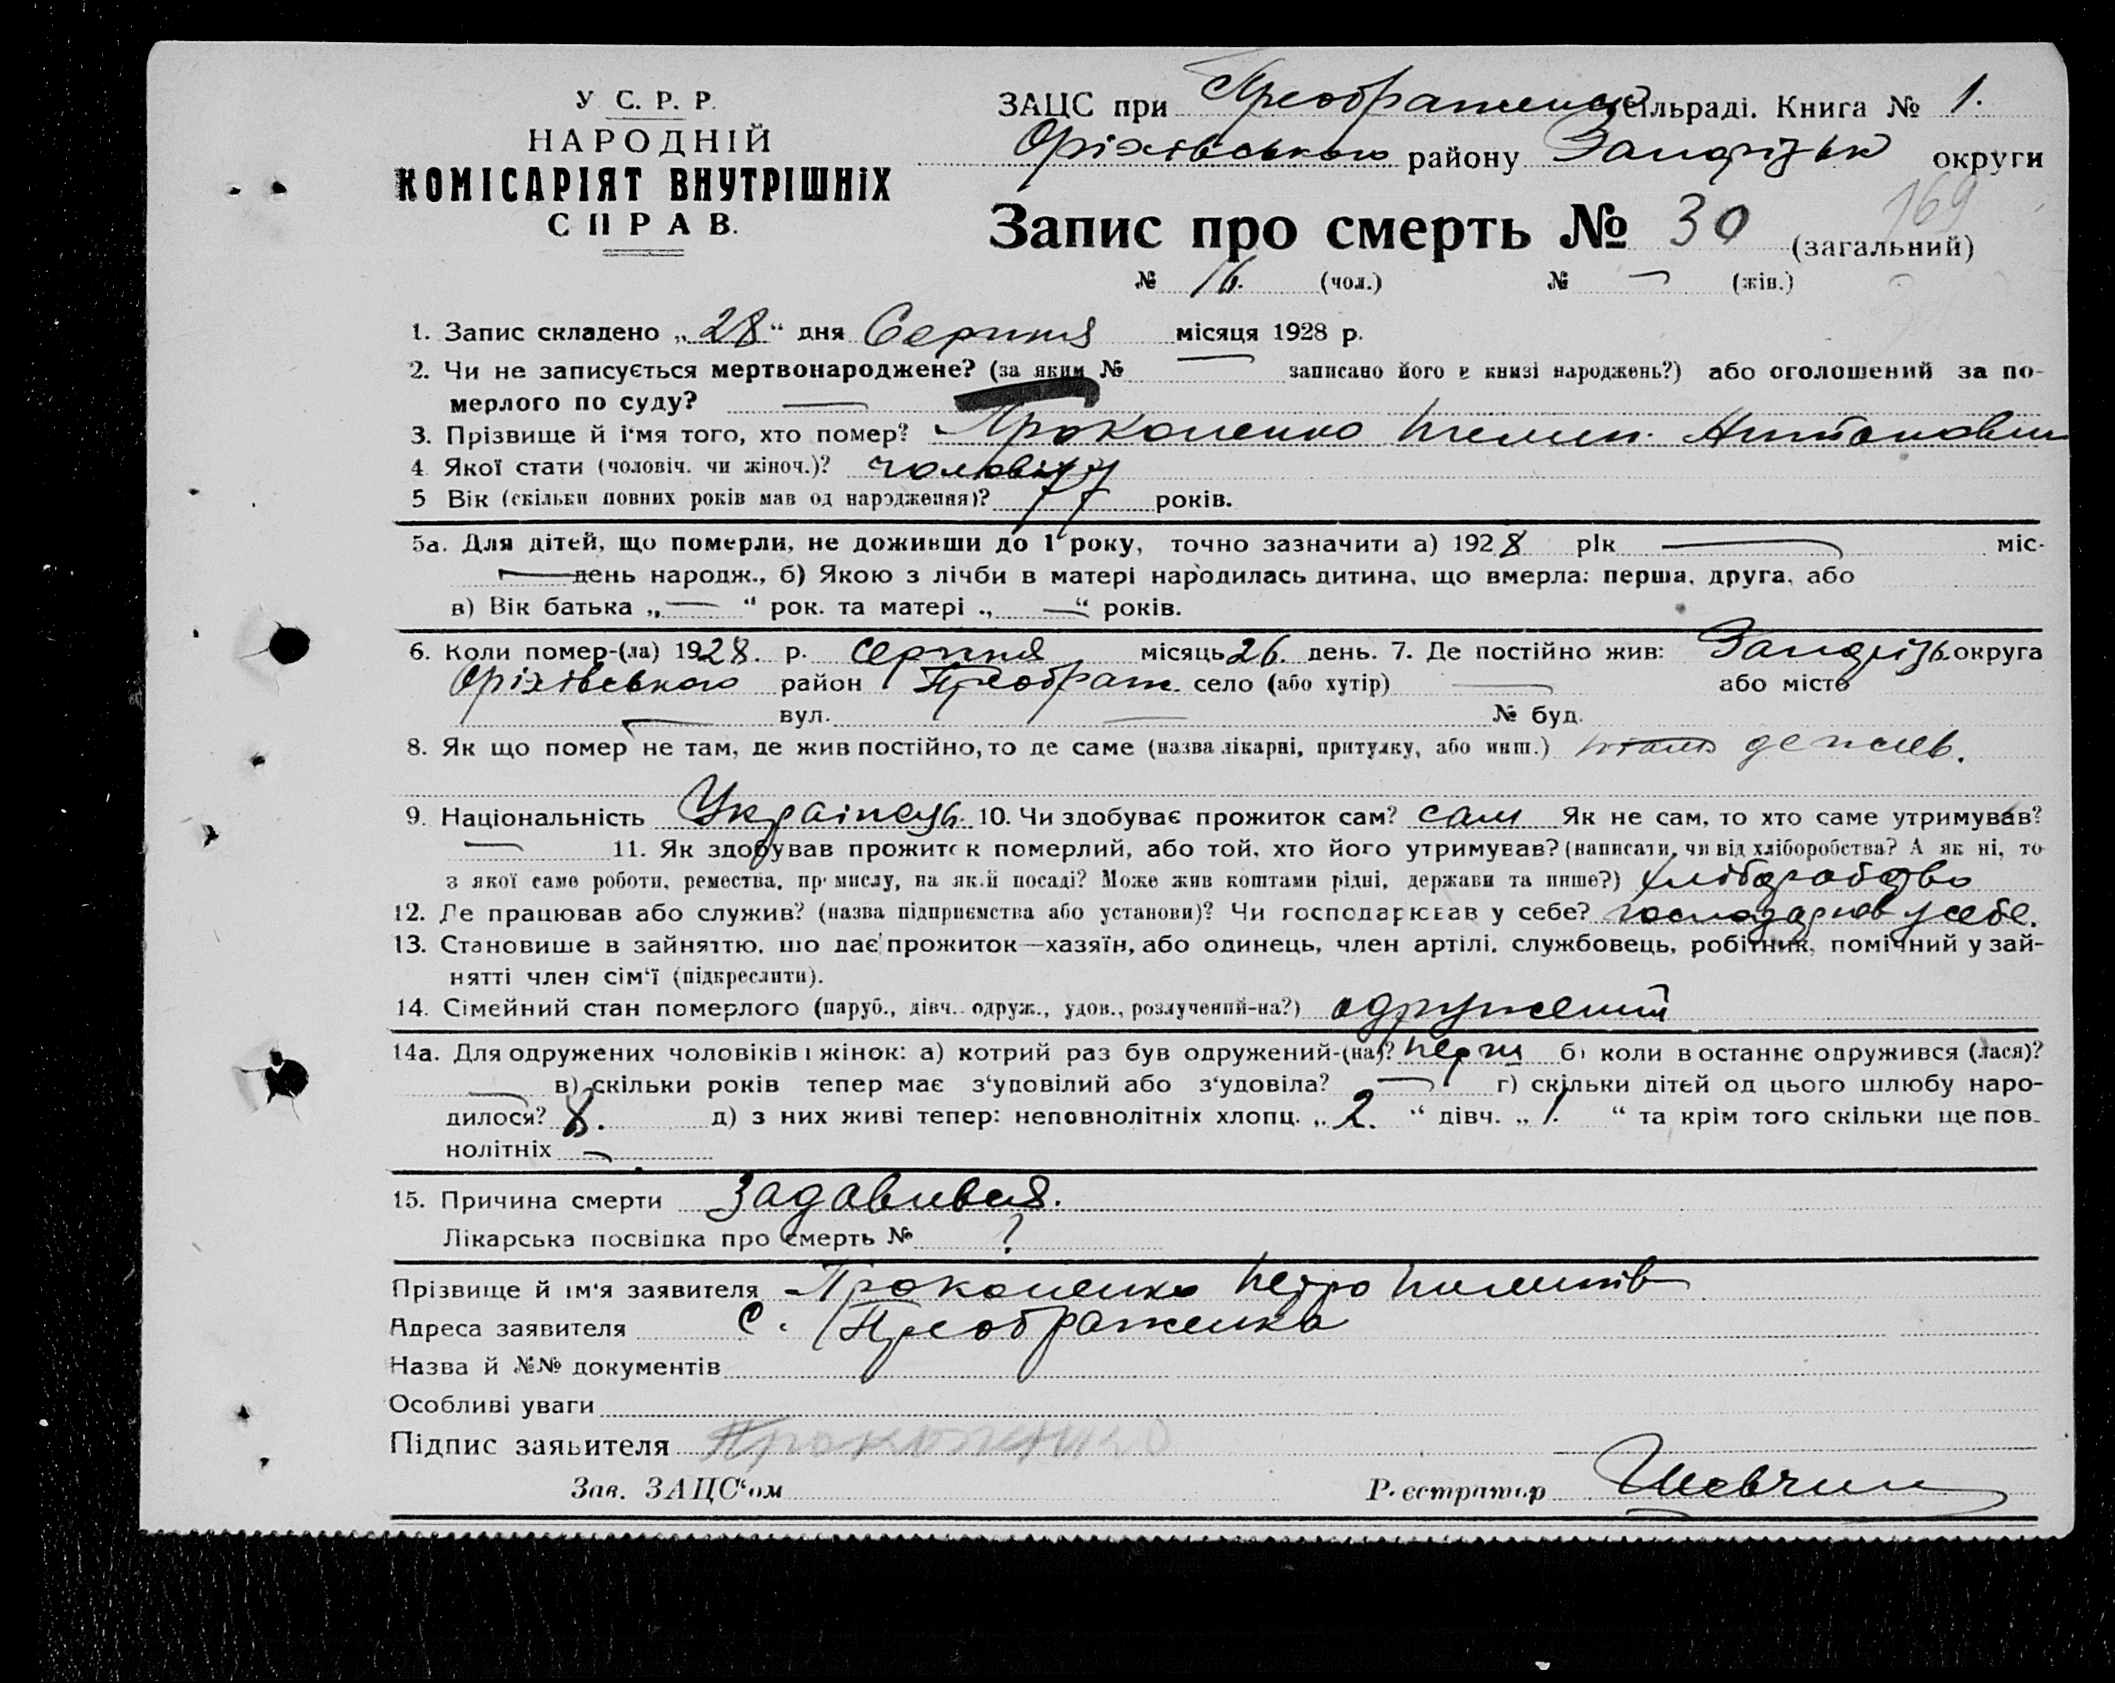 У С. Р. Р.
НАРОДНІЙ
КОМІСАРІЯТ ВНУТРІШНІХ
СПРАВ.
ЗАЦС при Преображенск сільраді. Книга № 1.
Оріхівського району Запорізьк округи
169
Запис про смерть № 30 (загальний)
№ 16. (чол.) № — (жін.)
1. Запис складено „28“ дня Серпня місяця 1928 р.
2. Чи не записується мертвонароджене? (за яким № — записано його в книзі народжень?) або оголошений за по-
мерлого по суду? —
3. Прізвище й ім'я того, хто помер? Прокопенко Пилип Антонович
4 Якої стати (чоловіч. чи жіноч.)? чоловіч
5 Вік (скільки повних років мав од народження)? 77 років.
5а. Для дітей, що померли, не доживши до 1 року, точно зазначити а) 1928 рік — міс-
— день народж., б) Якою з лічби в матері народилась дитина, що вмерла: перша, друга, або
в) Вік батька „—“ рок. та матері „—“ років.
6. Коли помер-(ла) 1928. р. серпня місяць 26. день. 7. Де постійно жив: Запорізьк. округа
Оріхівського район Преображ. село (або хутір) — або місто
— вул. — № буд.
8. Як що помер не там, де жив постійно, то де саме (назва лікарні, притулку, або инш.) там де жив.
9. Національність Українець. 10. Чи здобуває прожиток сам? сам Як не сам, то хто саме утримував?
— 11. Як здобував прожиток померлий, або той, хто його утримував? (написати, чи від хліборобства? А як ні, то
з якої саме роботи, ремества, промислу, на якій посаді? Може жив коштами рідні, держави та инше?) хліборобство
12. Де працював або служив? (назва підприємства або установи)? Чи господарював у себе? господарював у себе.
13. Становище в зайняттю, що дає прожиток—хазяїн, або одинець, член артілі, службовець, робітник, помічний у зай-
нятті член сім'ї (підкреслити).
14. Сімейний стан померлого (паруб., дівч. одруж., удов., розлучений-на?) одружений
14а. Для одружених чоловіків і жінок: а) котрий раз був одружений-(на)? перш б) коли в останнє одружився (лася)?
— в) скільки років тепер має з'удовілий або з'удовіла? — г) скільки дітей од цього шлюбу наро-
дилося? 8. д) з них живі тепер: неповнолітніх хлопц. „2.“ дівч. „1.“ та крім того скільки ще пов-
нолітніх —
15. Причина смерти Задавився.
Лікарська посвідка про смерть № ?
Прізвище й ім'я заявителя Прокопенко Петро Пилипів
Адреса заявителя с. Преображенка
Назва й №№ документів
Особливі уваги
Підпис заявителя Прокопенко
Зав. ЗАЦС'ом Реєстратор